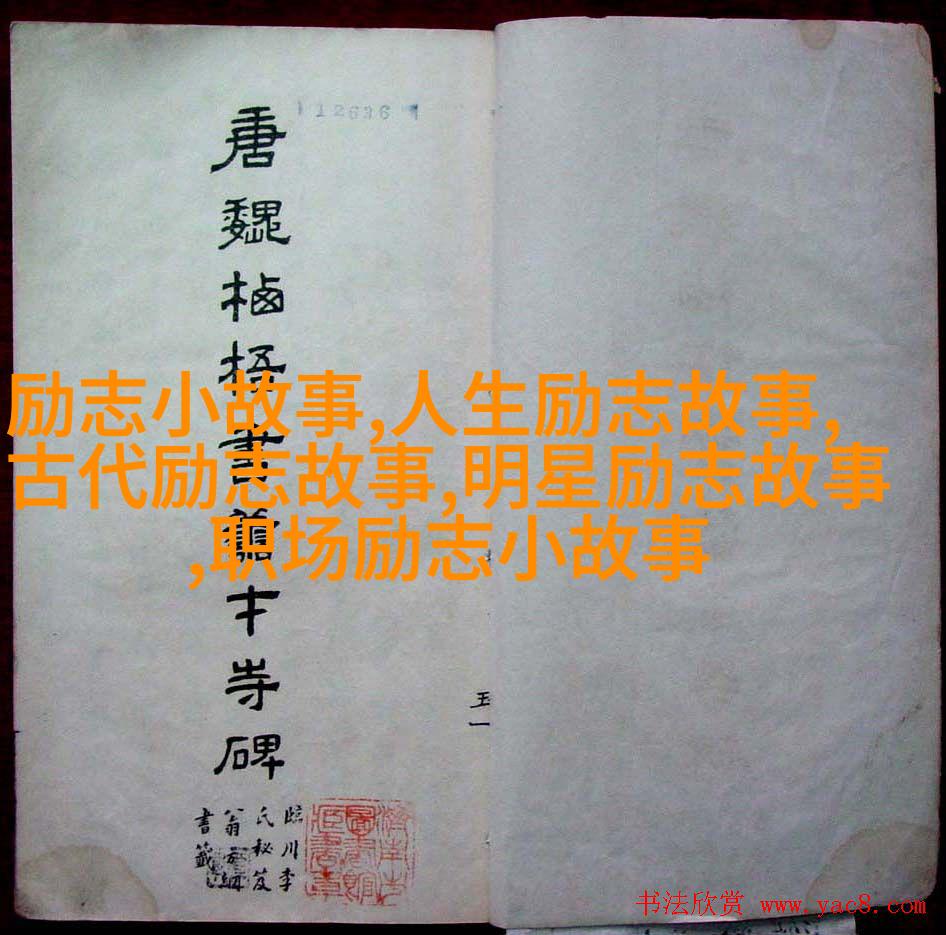 12636
唐魏栖梧書善才寺碑
臨川李
氏秘笈
翁方綱
書籤
王一
励志小故事,人生励志故事,
古代励志故事,明星励志故事
,职场励志小故事
书法欣赏 www.yac8.com